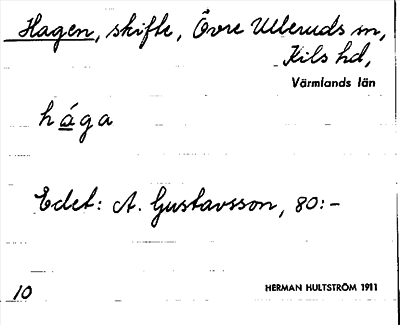 Hagen, skifte, Övre Ulleruds sn,
Kils hd,
Värmlands län
håga
Edet: A. Gustavsson, 80:-
HERMAN HULTSTRÖM 1911
10